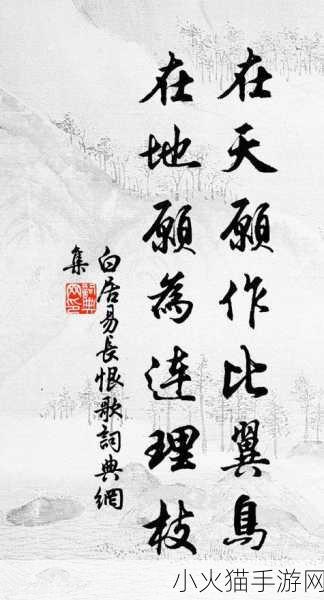 在天願作比翼鳥
在地願為连理枝
白居易長恨歌詞典網
集
小火猫手游网